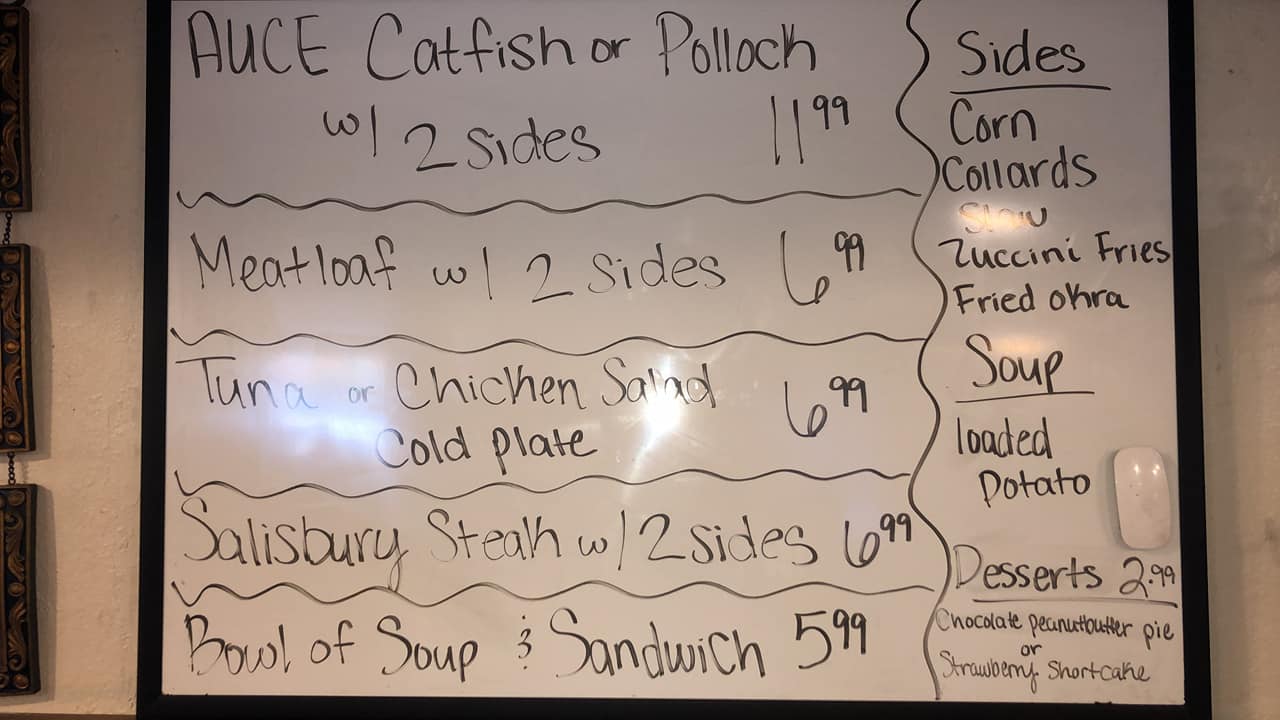 AUCE Catfish or Polloch
w/ 2 sides 11 99
Meatloaf w/ 2 Sides 6 99
Tuna or Chicken Salad 6 99
Cold plate
Salisbury Steak w/ 2 sides 6 99
Bowl of Soup & Sandwich 5 99
Sides
Corn
Collards
Slaw
Zuccini Fries
Fried okra
Soup
loaded
Potato
Desserts 2.99
Chocolate peanutbutter pie
or
Strawberry Shortcake